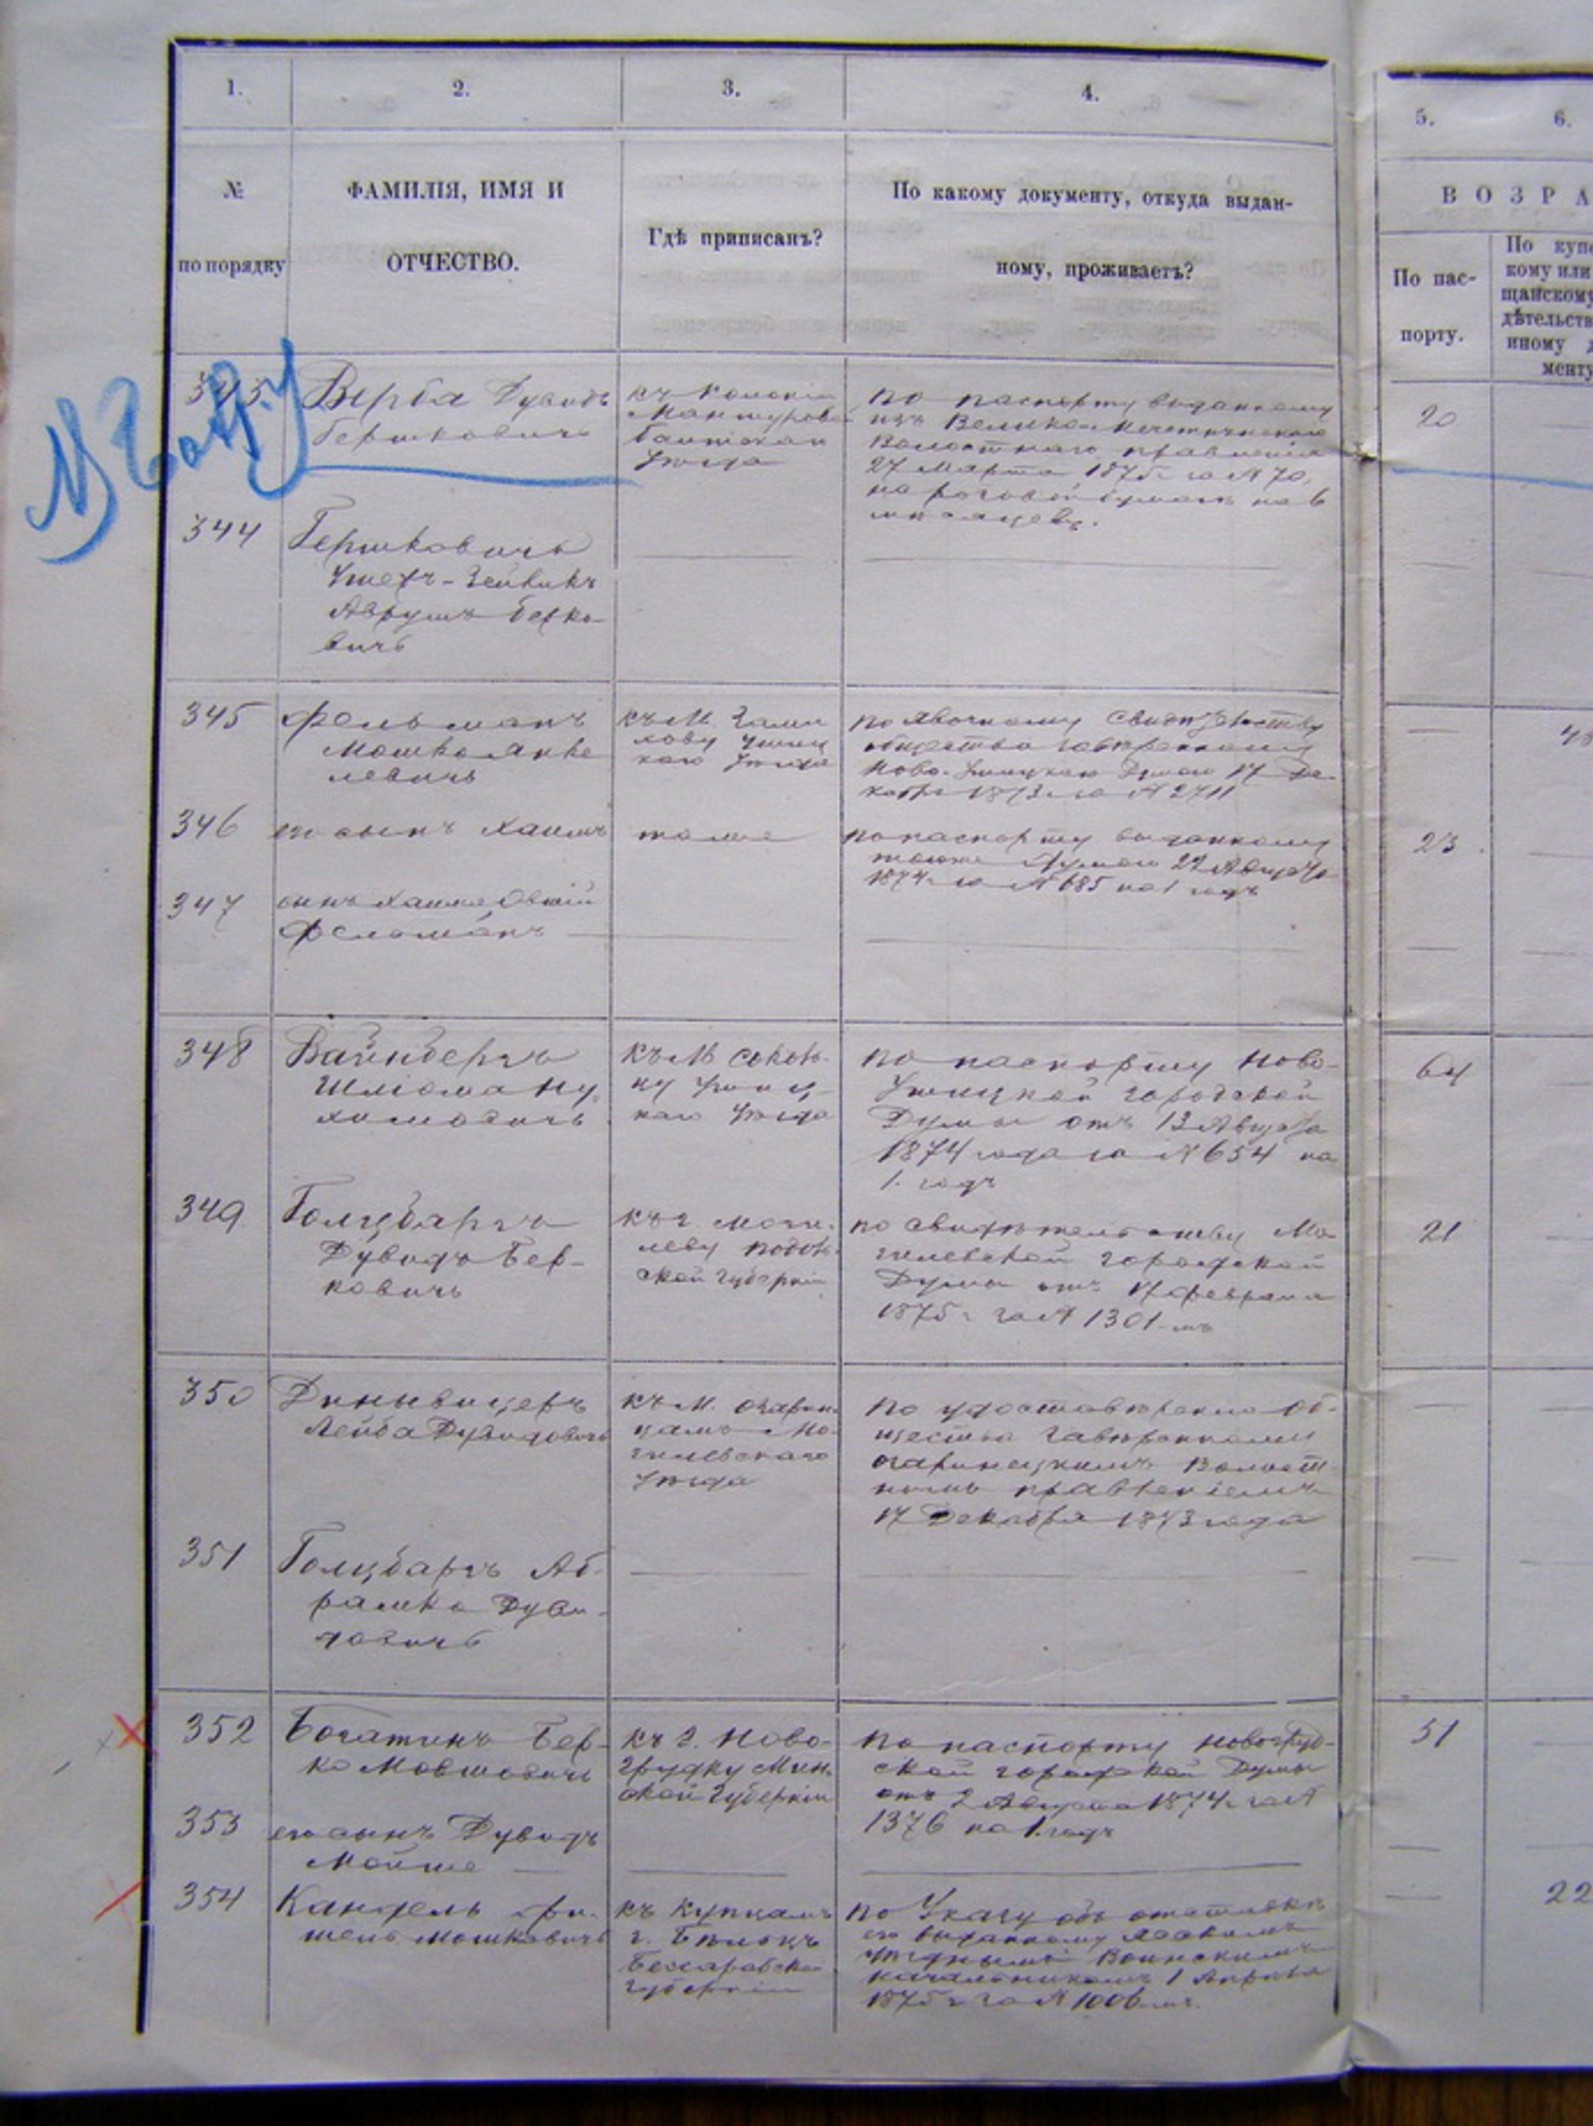 1.
2.
3.
4.
5.
6.
№
по порядку
ФАМИЛІЯ, ИМЯ И
ОТЧЕСТВО.
Гдѣ приписанъ?
По какому документу, откуда выдан-
ному, проживаетъ?
ВОЗРА
По пас-
порту.
По купе
кому или
щанскому
дѣтельств
иному д
менту
Верба Дувидъ
Гершковичъ
къ колоніи
уѣзда
по паспорту выданному
изъ
Волостнаго правленія
27 марта 1875 г. за № 70,
на 6
20
344
Гершковичъ
Аврумъ Берко
вичъ
345
Фельдманъ
Мошко Янке
левичъ
къ м.
уѣзда
по явочному свидѣтельству
общества завѣренному
Ново-Ушицкою Думою 17 Де-
кабря 1873 г. за № 2711
346
его сынъ Хаимъ
тоже
по паспорту выданному
тоюже Думою 22 Августа
1874 г. за № 685 на 1 годъ
23
347
сынъ Хаима Овшій
Фельдманъ
348
Вайнбергъ
Шліома Ну
химовичъ
къ м. Соколь-
цу Ушиц-
каго Уѣзда
по паспорту Ново-
Ушицкой городской
Думы отъ 13 Августа
1874 года за № 654 на
1. годъ
64
349
Голцбаргъ
Дувидъ Бер-
ковичъ
къ г. Моги-
леву Подоль-
ской губерніи
по свидѣтельству Мо
гилевской городской
Думы отъ 17 февраля
1875 г. за № 1301-мъ
21
350
Лейба Дувидовичъ
къ м. Озарин-
цамъ Мо-
гилевскаго
Уѣзда
по удостовѣренію Об-
щества завѣренному
Озаринецкимъ Волост
нымъ правленіемъ
17 Декабря 1873 года
351
Голцбаргъ Аб-
рамко Дуви-
довичъ
352
Богатинъ Бер-
ко Мовшовичъ
къ г. Ново-
грудку Мин-
ской Губерніи
по паспорту Новогруд-
ской городской Думы
отъ 2 Августа 1874 г. за №
1376 на 1. годъ
51
353
его сынъ Дувидъ
Мойше
354
Кандель Фи-
шель Мошковичъ
къ купцамъ
г. Бѣльцъ
Бессарабской
губерніи
по Указу объ отставкѣ
его выданному
уѣзднымъ Воинскимъ
начальникомъ 1 Апрѣля
1875 г. за № 1006-мъ.
22